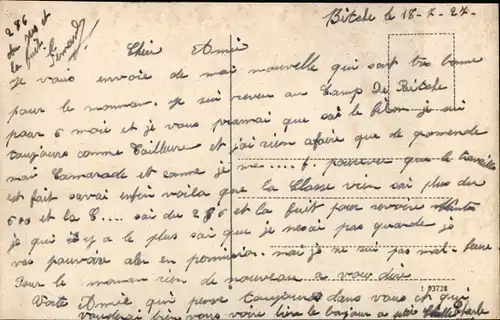 286
au jus et
la fuit
Fernand
Bitche le 18-7-27
Cher Amie
Je vous envoie de mai nouvelle qui sont trè bonne
pour le moman. Je sui reveu au Camp De Bitche
pour 6 moie et je vous promai que sai le filon je sui
toujours comme Tailleure et j'ai rien afaire que de promende
mai Camarade et comme je me .... f. pourvue que le travaille
est fait savai enfin voila que la Classe vien sai plus du
600 et la C.... sai du 286 et la fuit pour revoire
je qui il y a le plus sai que je nesai pas quande je
vai pouvoire aler en permision. mai je ne sui pas mal.
Pour le moman rien de nouveau a vous dire
Votre Amie qui pense toujours dans vous et qui
vouderai bien vous voire bien le bonjour a
1 93728